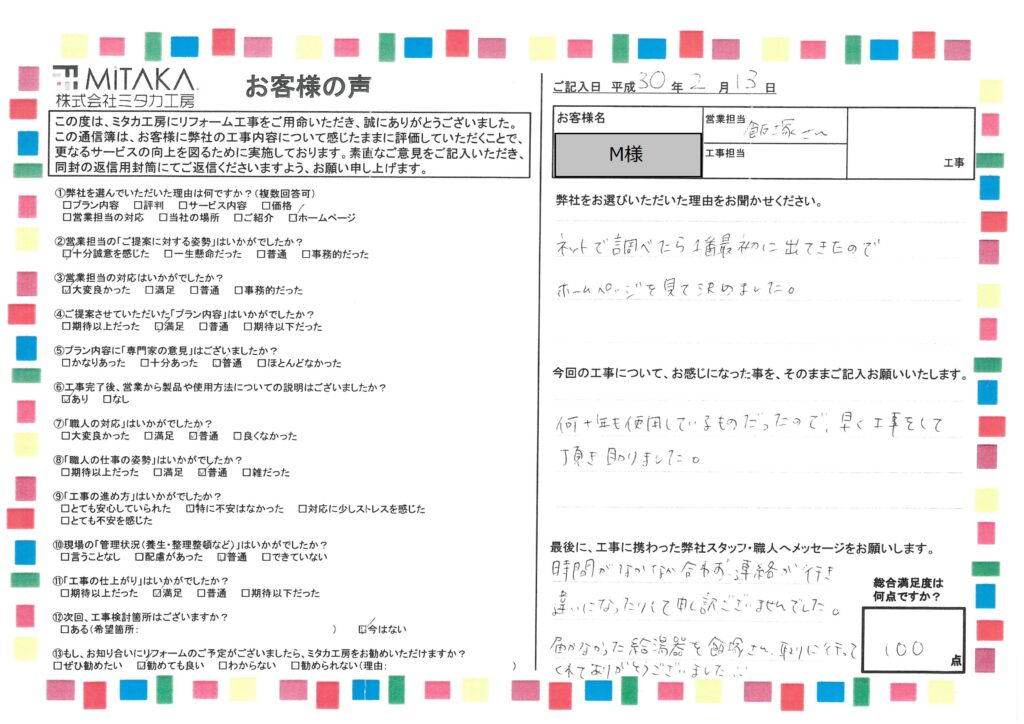 MiTAKA
株式会社ミタカ工房
お客様の声
この度は、ミタカ工房にリフォーム工事をご用命いただき、誠にありがとうございました。
この通信簿は、お客様に弊社の工事内容について感じたままに評価していただくことで、
更なるサービスの向上を図るために実施しております。素直なご意見をご記入いただき、
同封の返信用封筒にてご返信くださいますよう、お願い申し上げます。
①弊社を選んでいただいた理由は何ですか？(複数回答可)
□プラン内容 □評判 □サービス内容 □価格
□営業担当の対応 □当社の場所 □ご紹介 ☑ホームページ
②営業担当の「ご提案に対する姿勢」はいかがでしたか？
☑十分誠意を感じた □一生懸命だった □普通 □事務的だった
③営業担当の対応はいかがでしたか？
☑大変良かった □満足 □普通 □事務的だった
④ご提案させていただいた「プラン内容」はいかがでしたか？
□期待以上だった ☑満足 □普通 □期待以下だった
⑤プラン内容に「専門家の意見」はございましたか？
□かなりあった □十分あった ☑普通 □ほとんどなかった
⑥工事完了後、営業から製品や使用方法についての説明はございましたか？
☑あり □なし
⑦「職人の対応」はいかがでしたか？
□大変良かった □満足 ☑普通 □良くなかった
⑧「職人の仕事の姿勢」はいかがでしたか？
□期待以上だった □満足 ☑普通 □雑だった
⑨「工事の進め方」はいかがでしたか？
□とても安心していられた ☑特に不安はなかった □対応に少しストレスを感じた
□とても不安を感じた
⑩現場の「管理状況(養生・整理整頓など)」はいかがでしたか？
□言うことなし □配慮があった ☑普通 □できていない
⑪「工事の仕上がり」はいかがでしたか？
□期待以上だった ☑満足 □普通 □期待以下だった
⑫次回、工事検討箇所はございますか？
□ある(希望箇所: ) ☑今はない
⑬もし、お知り合いにリフォームのご予定がございましたら、ミタカ工房をお勧めいただけますか？
□ぜひ勧めたい ☑勧めても良い □わからない □勧められない(理由: )
ご記入日 平成30年2月13日
お客様名
M様
営業担当 飯塚さん
工事担当
工事
弊社をお選びいただいた理由をお聞かせください。
ネットで調べたら1番最初に出てきたので
ホームページを見て決めました。
今回の工事について、お感じになった事を、そのままご記入お願いいたします。
何十年も使用しているものだったので、早く工事をして
頂き助りました。
最後に、工事に携わった弊社スタッフ・職人へメッセージをお願いします。
時間がなかなか合わず、連絡が行き
違いになったりして申し訳ございませんでした。
届かなかった給湯器を飯塚さん、取りに行って
くれてありがとうございました
総合満足度は
何点ですか？
100点